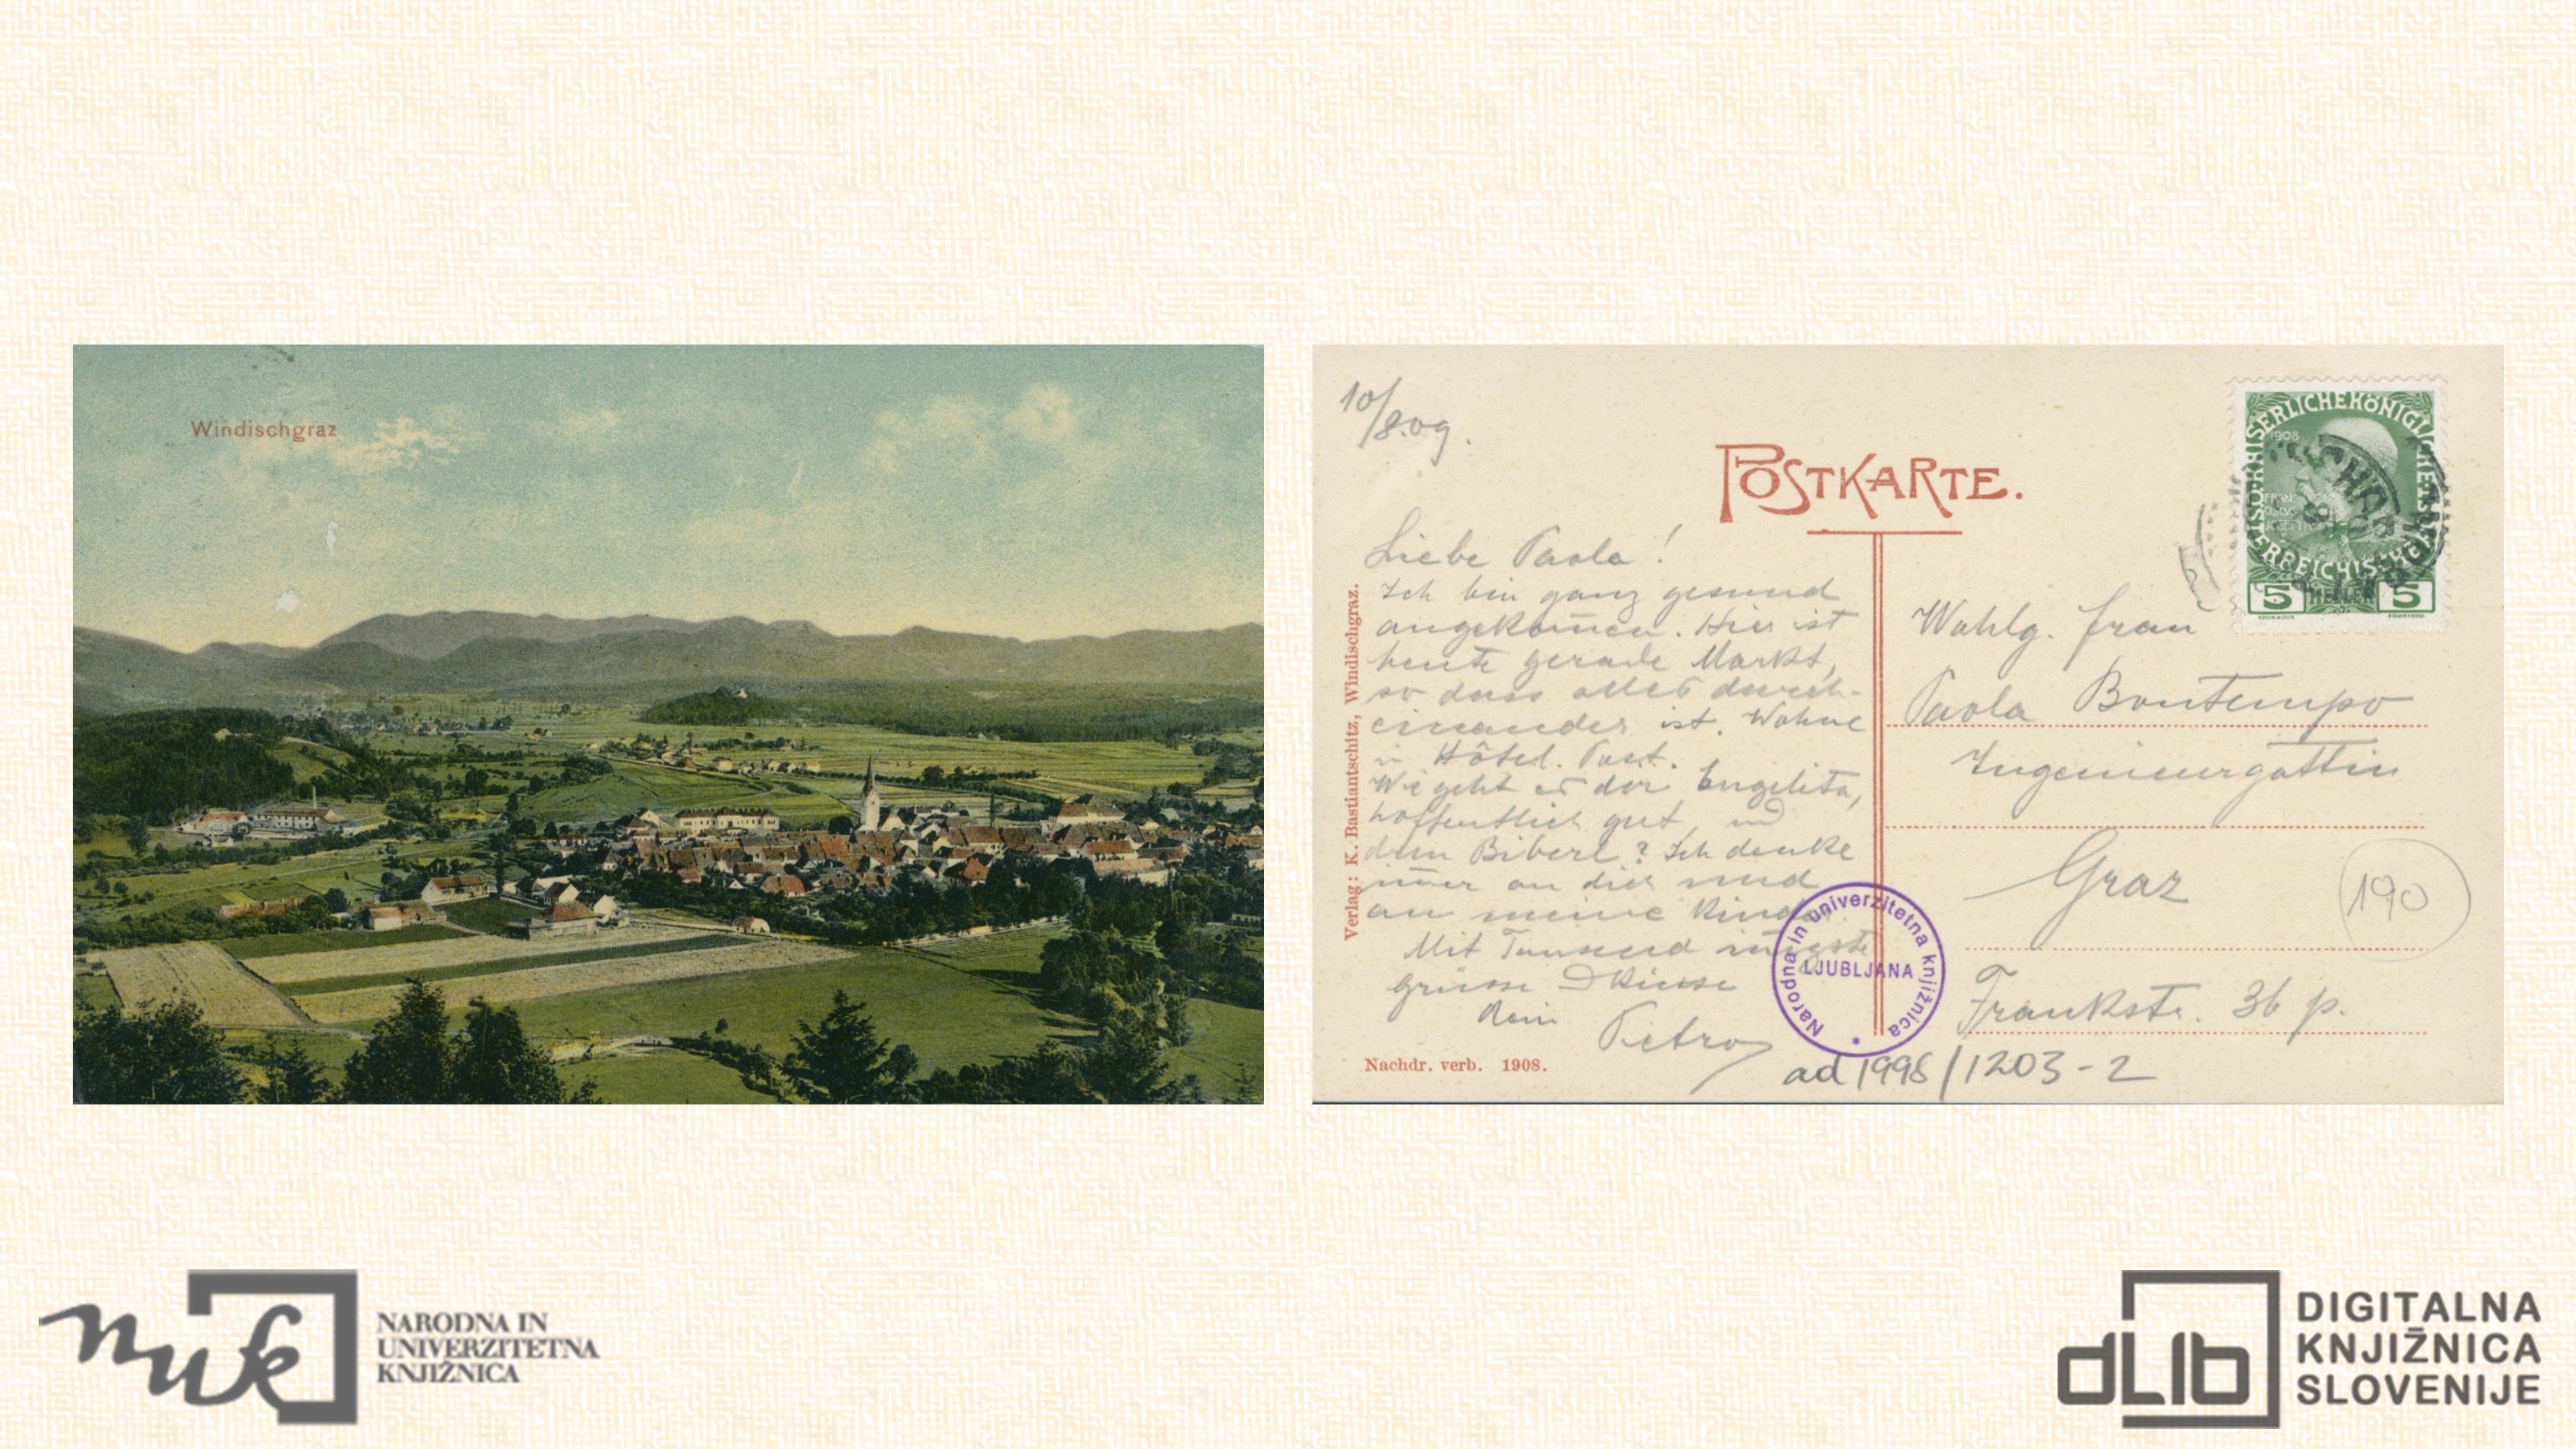 Windischgraz
10/8.09.
POSTKARTE.
KAISERLICHE KÖNIGLICHE ÖSTERREICHISCHE
1908
5 HELLER 5
Liebe Paola!
Ich bin ganz gesund
angekom̄en. Hier ist
heute gerade Markt,
so dass alles durch-
einander ist. Wohne
in Hôtel. Post.
Wie geht es der Engelita,
hoffentlich gut, und
dem Biberl? Ich denke
im̄er an dich und
an meine Kinder.
Mit Tausend
Grüsse Küsse
Dein
Petro
Wohlg. Frau
Paola Bontempo
Ingenieurgattin
Graz
190
Frankstr. 36 p.
Verlag: K. Bastiantschitz, Windischgraz.
Nachdr. verb. 1908.
Narodna in univerzitetna knjižnica
LJUBLJANA
ad 1998/1203-2
nuk
NARODNA IN
UNIVERZITETNA
KNJIŽNICA
dLib
DIGITALNA
KNJIŽNICA
SLOVENIJE